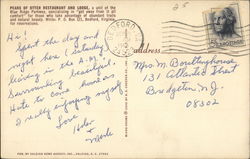 PEAKS OF OTTER RESTAURANT AND LODGE, a unit of the
Blue Ridge Parkway, specializing in "get away from it all
comfort" for those who take advantage of abundant trails
and natural beauty. Write: P. O. Box 521, Bedford, Virginia
for reservations.
BEDFORD
address
Hi!
Spent the day and
night here (Saturday)
leaving in the A.M.
Surrounding beautiful.
Hate to come home as
I really enjoying myself
Love
Helen
Mrs M. Boultinghouse
131 Atlantic Street
Bridgeton N.J.
08302
25